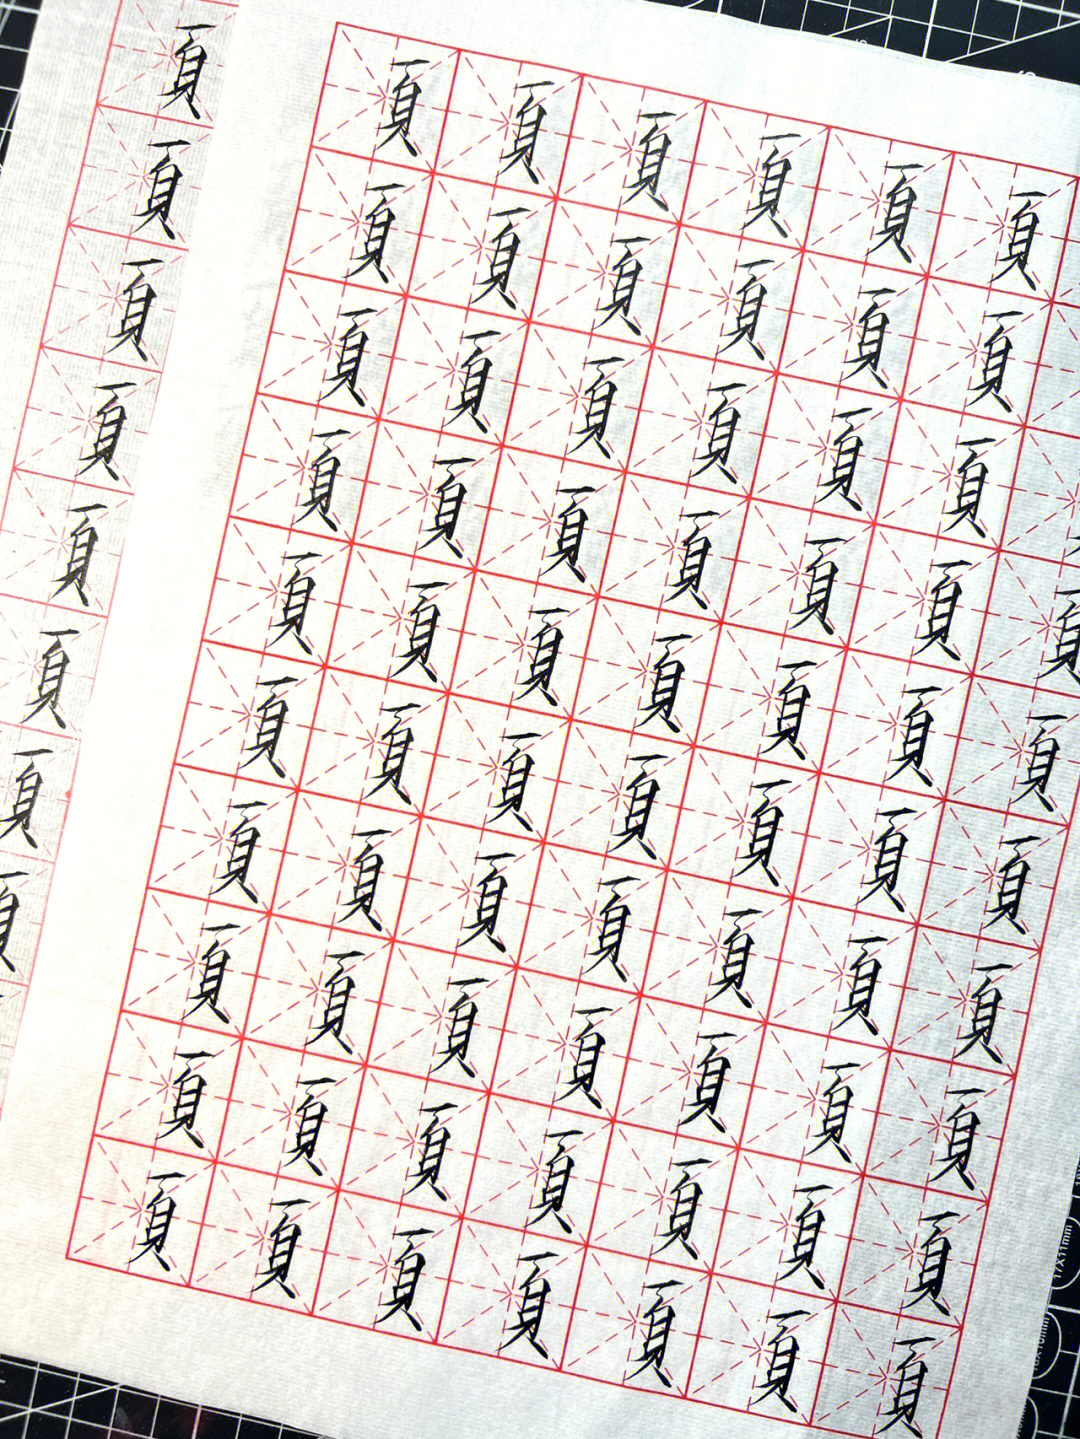 頁
頁
頁
頁
頁
頁
頁
頁頁頁頁頁頁
頁頁頁頁頁頁
頁頁頁頁頁頁
頁頁頁頁頁頁頁
頁頁頁頁頁頁頁
頁頁頁頁頁頁頁
頁頁頁頁頁頁頁
頁頁頁頁頁頁頁
頁頁頁頁頁頁頁
頁頁頁頁頁頁頁
17X11mm